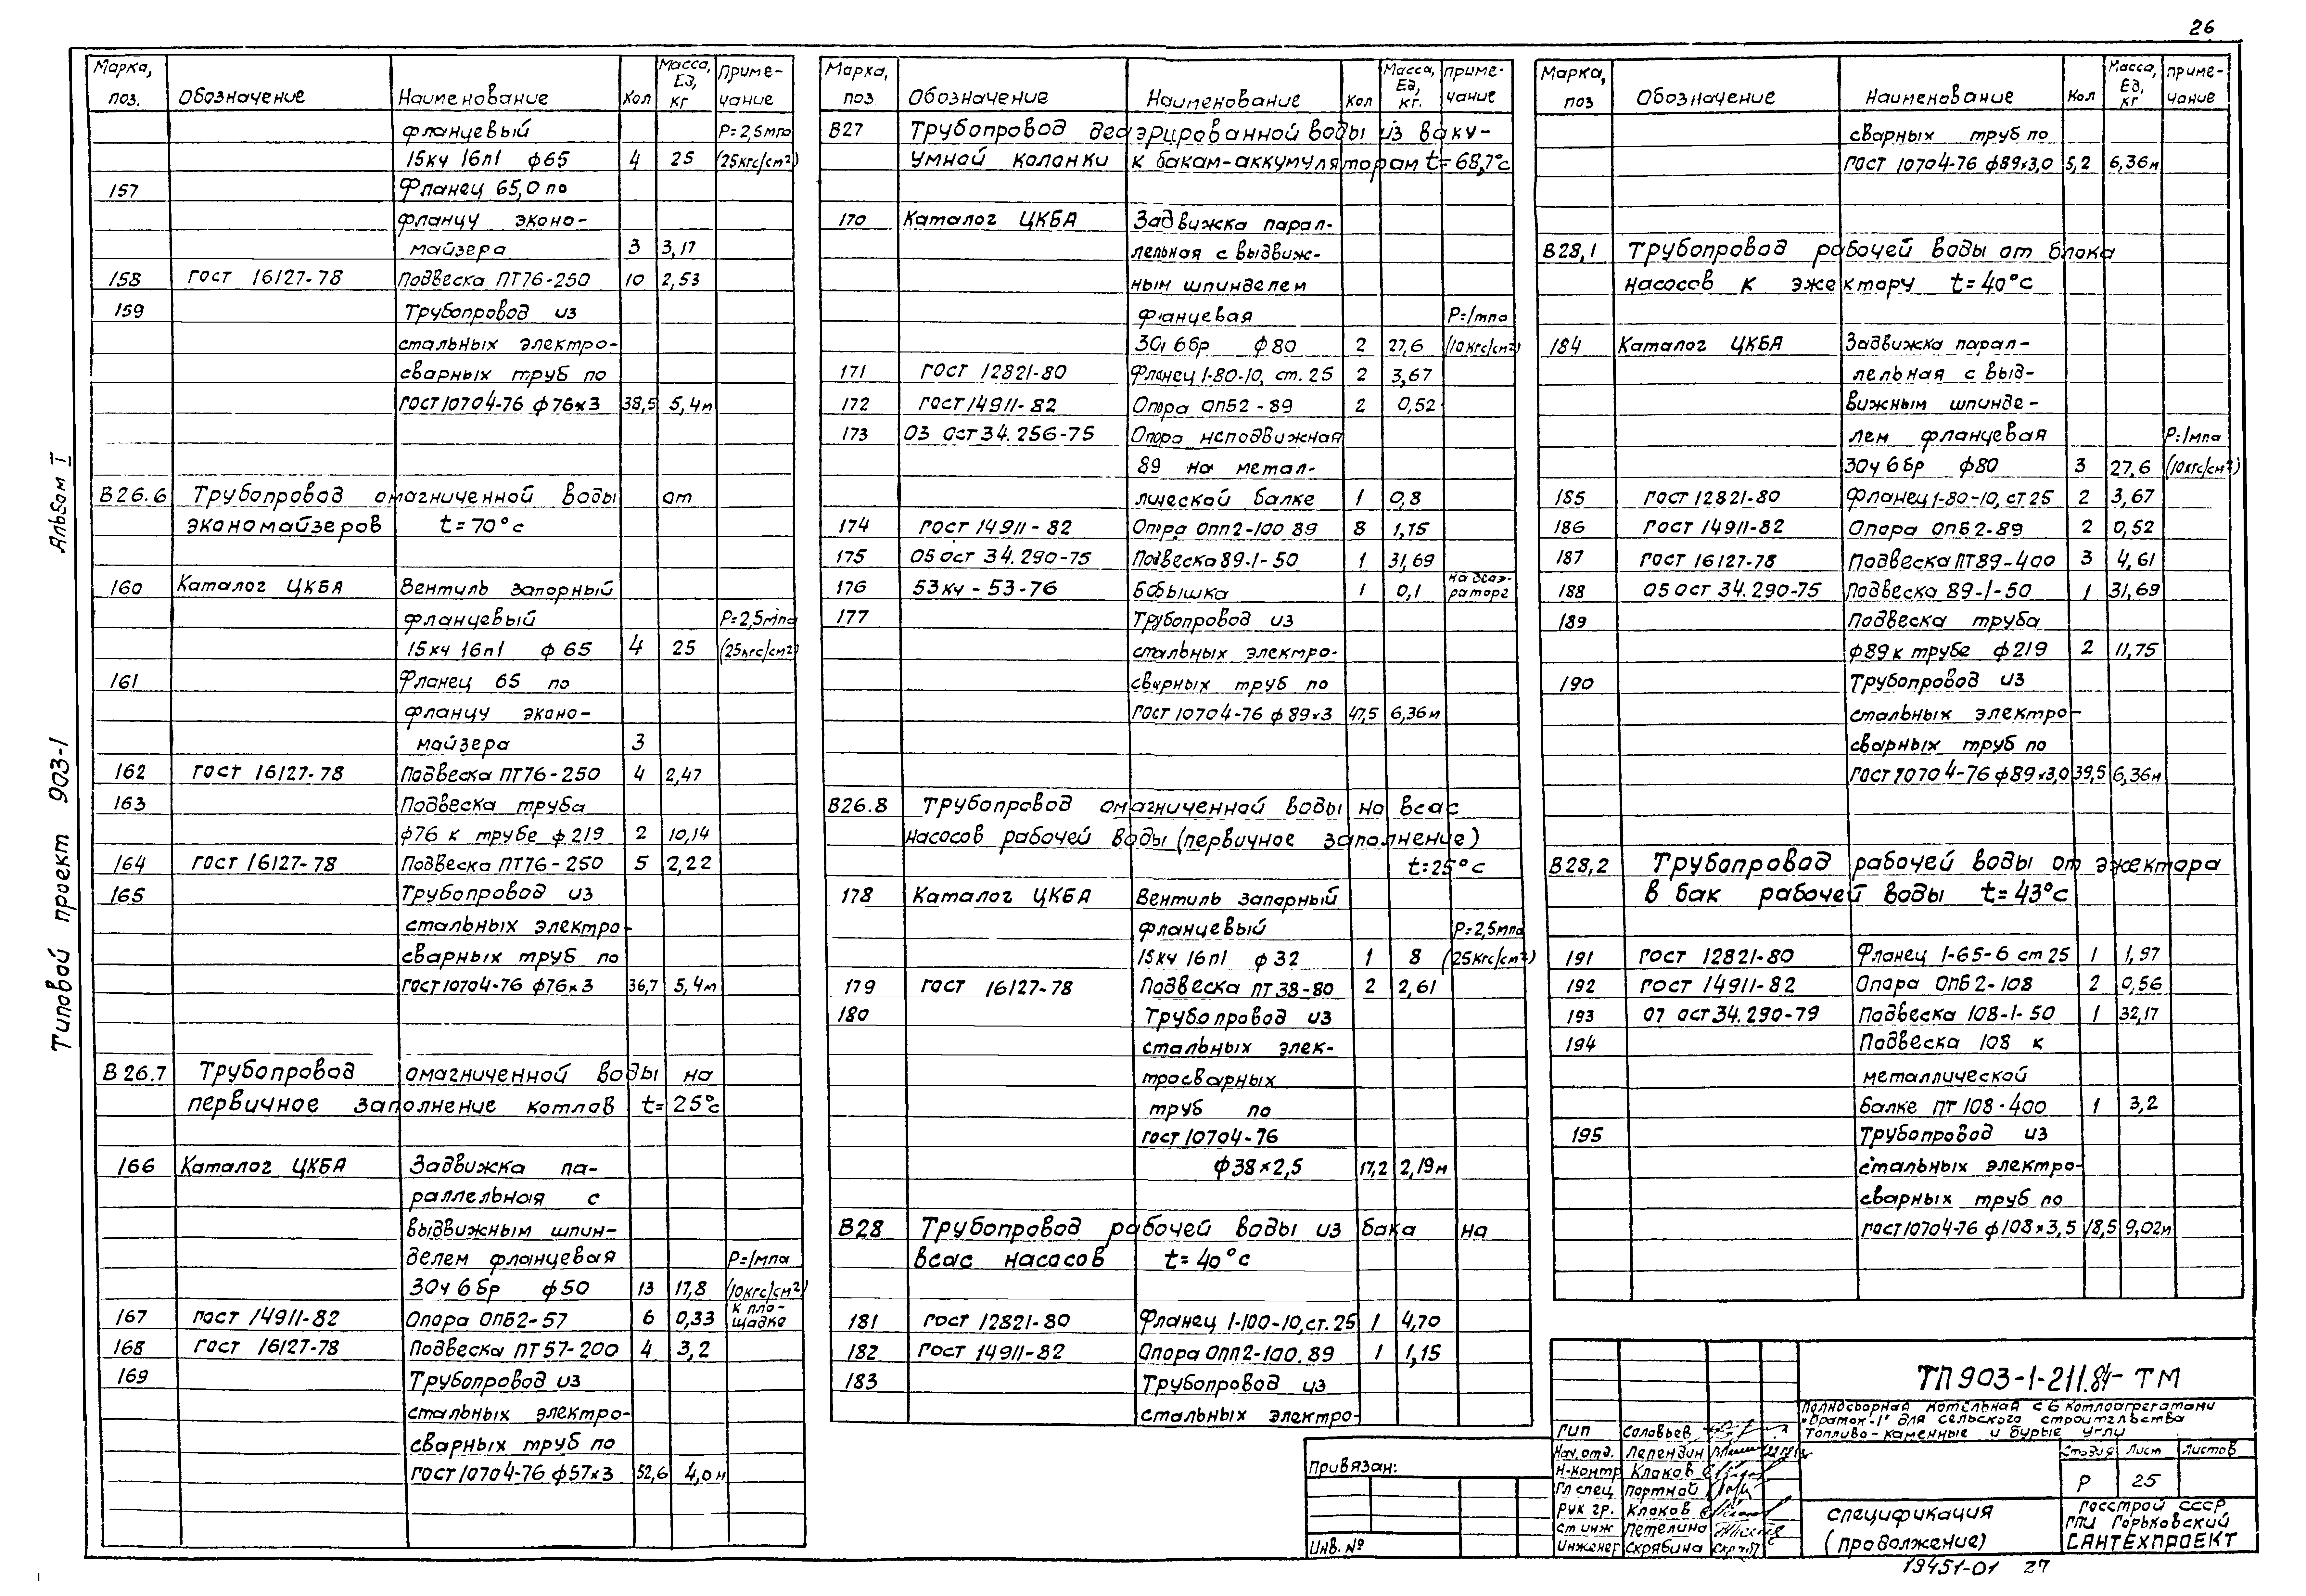 26
Альбом I
Типовой проект 903-1
Марка, поз. Обозначение Наименование Кол Масса, Ед, кг Примечание
фланцевый Р=2,5мпа
15кч 16п1 ф65 4 25 (25кгс/см²)
157 Фланец 65,0 по
фланцу эконо-
майзера 3 3,17
158 ГОСТ 16127-78 Подвеска ПТ76-250 10 2,53
159 Трубопровод из
стальных электро-
сварных труб по
ГОСТ 10704-76 ф76х3 38,5 5,4м
В26.6 Трубопровод омагниченной воды от
экономайзеров t=70°с
160 Каталог ЦКБА Вентиль запорный
фланцевый Р=2,5мпа
15кч 16п1 ф65 4 25 (25кгс/см²)
161 Фланец 65 по
фланцу эконо-
майзера 3
162 ГОСТ 16127-78 Подвеска ПТ76-250 4 2,47
163 Подвеска труба
ф76 к трубе ф219 2 10,14
164 ГОСТ 16127-78 Подвеска ПТ76-250 5 2,22
165 Трубопровод из
стальных электро-
сварных труб по
ГОСТ 10704-76 ф76х3 36,7 5,4м
В26.7 Трубопровод омагниченной воды на
первичное заполнение котлов t=25°с
166 Каталог ЦКБА Задвижка па-
раллельная с
выдвижным шпин-
делем фланцевая Р=1мпа
30ч 6бр ф50 13 17,8 (10кгс/см²)
167 ГОСТ 14911-82 Опора ОПБ2-57 6 0,33 к пло-щадке
168 ГОСТ 16127-78 Подвеска ПТ57-200 4 3,2
169 Трубопровод из
стальных электро-
сварных труб по
ГОСТ 10704-76 ф57х3 52,6 4,0м
Марка, поз. Обозначение Наименование Кол Масса, Ед, кг. Примечание
В27 Трубопровод деаэрированной воды из ваку-
умной колонки к бакам-аккумуляторам t=68,7°с
170 Каталог ЦКБА Задвижка парал-
лельная с выдвиж-
ным шпинделем
фланцевая Р=1мпа
30ч 6бр ф80 2 27,6 (10кгс/см²)
171 ГОСТ 12821-80 Фланец 1-80-10, ст. 25 2 3,67
172 ГОСТ 14911-82 Опора ОПБ2-89 2 0,52
173 03 ОСТ 34.256-75 Опора неподвижная
89 на метал-
лической балке 1 0,8
174 ГОСТ 14911-82 Опора ОПП2-100 89 8 1,15
175 05 ОСТ 34.290-75 Подвеска 89-1-50 1 31,69
176 53кч-53-76 Бобышка 1 0,1
177 Трубопровод из
стальных электро-
сварных труб по
ГОСТ 10704-76 ф89х3 47,5 6,36м
В26.8 Трубопровод омагниченной воды на всас
насосов рабочей воды (первичное заполнение)
t=25°с
178 Каталог ЦКБА Вентиль запорный
фланцевый Р=2,5мпа
15кч 16п1 ф32 1 8 (25кгс/см²)
179 ГОСТ 16127-78 Подвеска ПТ38-80 2 2,61
180 Трубопровод из
стальных элек-
тросварных
труб по
ГОСТ 10704-76
ф38х2,5 17,2 2,19м
В28 Трубопровод рабочей воды из бака на
всас насосов t=40°с
181 ГОСТ 12821-80 Фланец 1-100-10, ст. 25 1 4,70
182 ГОСТ 14911-82 Опора ОПП2-100.89 1 1,15
183 Трубопровод из
стальных электро-
Марка, поз Обозначение Наименование Кол Масса, Ед, кг Примечание
сварных труб по
ГОСТ 10704-76 ф89х3,0 5,2 6,36м
В28,1 Трубопровод рабочей воды от блока
насосов к эжектору t=40°с
184 Каталог ЦКБА Задвижка парал-
лельная с выд-
вижным шпинде-
лем фланцевая Р=1мпа
30ч 6бр ф80 3 27,6 (10кгс/см²)
185 ГОСТ 12821-80 Фланец 1-80-10, ст 25 2 3,67
186 ГОСТ 14911-82 Опора ОПБ2-89 2 0,52
187 ГОСТ 16127-78 Подвеска ПТ89-400 3 4,61
188 05 ОСТ 34.290-75 Подвеска 89-1-50 1 31,69
189 Подвеска труба
ф89 к трубе ф219 2 11,75
190 Трубопровод из
стальных электро-
сварных труб по
ГОСТ 10704-76 ф89х3,0 39,5 6,36м
В28,2 Трубопровод рабочей воды от эжектора
в бак рабочей воды t=43°с
191 ГОСТ 12821-80 Фланец 1-65-6 ст 25 1 1,97
192 ГОСТ 14911-82 Опора ОПБ2-108 2 0,56
193 07 ОСТ 34.290-79 Подвеска 108-1-50 1 32,17
194 Подвеска 108 к
металлической
балке ПТ 108-400 1 3,2
195 Трубопровод из
стальных электро-
сварных труб по
ГОСТ 10704-76 ф108х3,5 18,5 9,02м
Привязан:
Инв. №
ТП 903-1-211.84-ТМ
Полносборная котельная с 6 котлоагрегатами
"Братск-1" для сельского строительства
Топливо-каменные и бурые угли
Гип Соловьев
Нач. отд. Лепендин
Н-контр Клаков
Гл спец Портной
Рук гр. Клаков
Ст инж Петелина
Инженер Скрябина
Стадия Лист Листов
Р 25
Спецификация
(продолжение)
Госстрой СССР
ГПИ Горьковский
САНТЕХПРОЕКТ
19451-01 27